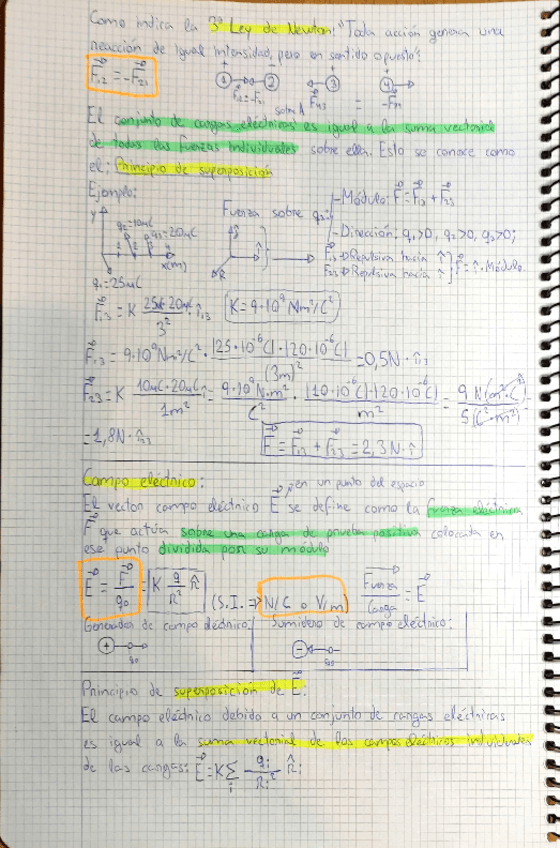 Como indica la 3ª Ley de Newton: "Toda acción genera una
reacción de igual intensidad, pero en sentido opuesto":
F⃗₁₂ = -F⃗₂₁
El conjunto de cargas eléctricas es igual a la suma vectorial
de todas las Fuerzas individuales sobre ella. Esto se conoce como
el: Principio de superposición
Ejemplo:
Fuerza sobre q₃:
-Módulo: F⃗ = F⃗₁₃ + F⃗₂₃
-Dirección: q₁>0, q₂>0, q₃>0;
q₂=10μC
q₃=20μC
x(m)
q₁=25μC
K = 9·10⁹ Nm²/C²
F⃗₁₃ = 9·10⁹ Nm²/C² · |25·10⁻⁶C|·|20·10⁻⁶C| / (3m)² = 0,5N · î₁₃
F⃗₂₃ = K 10μC·20μC / 1m² = 9·10⁹ N·m² / C² · |10·10⁻⁶C|·|20·10⁻⁶C| / m²
= 1,8N · î₂₃
F⃗ = F⃗₁₃ + F⃗₂₃ = 2,3N · î
Campo eléctrico:
en un punto del espacio
El vector campo eléctrico E⃗ se define como la fuerza eléctrica
F⃗ que actúa sobre una carga de prueba positiva colocada en
ese punto dividida por su módulo
E⃗ = F⃗/q₀ = K q/R² R̂ (S.I. ⇒ N/C o V/m) Fuerza/Carga = E⃗
Generador de campo eléctrico: Sumidero de campo eléctrico:
Principio de superposición de E⃗:
El campo eléctrico debido a un conjunto de cargas eléctricas
es igual a la suma vectorial de los campos eléctricos individuales
de las cargas: E⃗ = K Σᵢ qᵢ/Rᵢ² R̂ᵢ